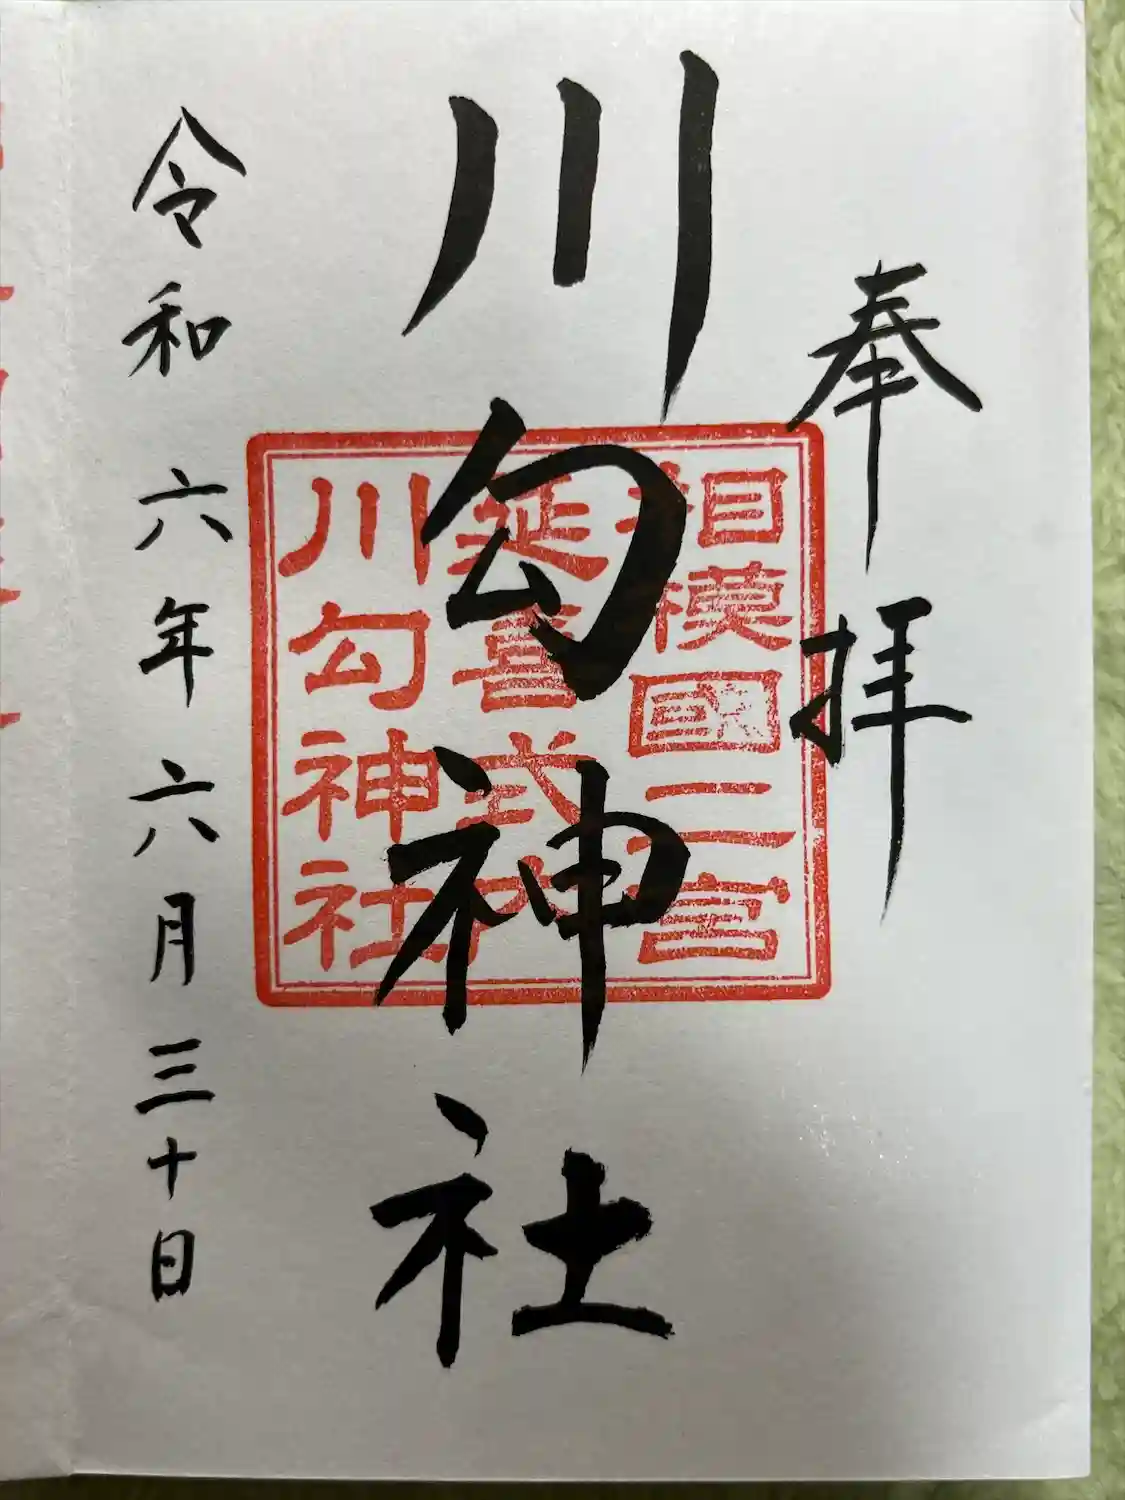 奉拝
川勾神社
相模國二宮
延喜式内
川勾神社
令和六年六月三十日